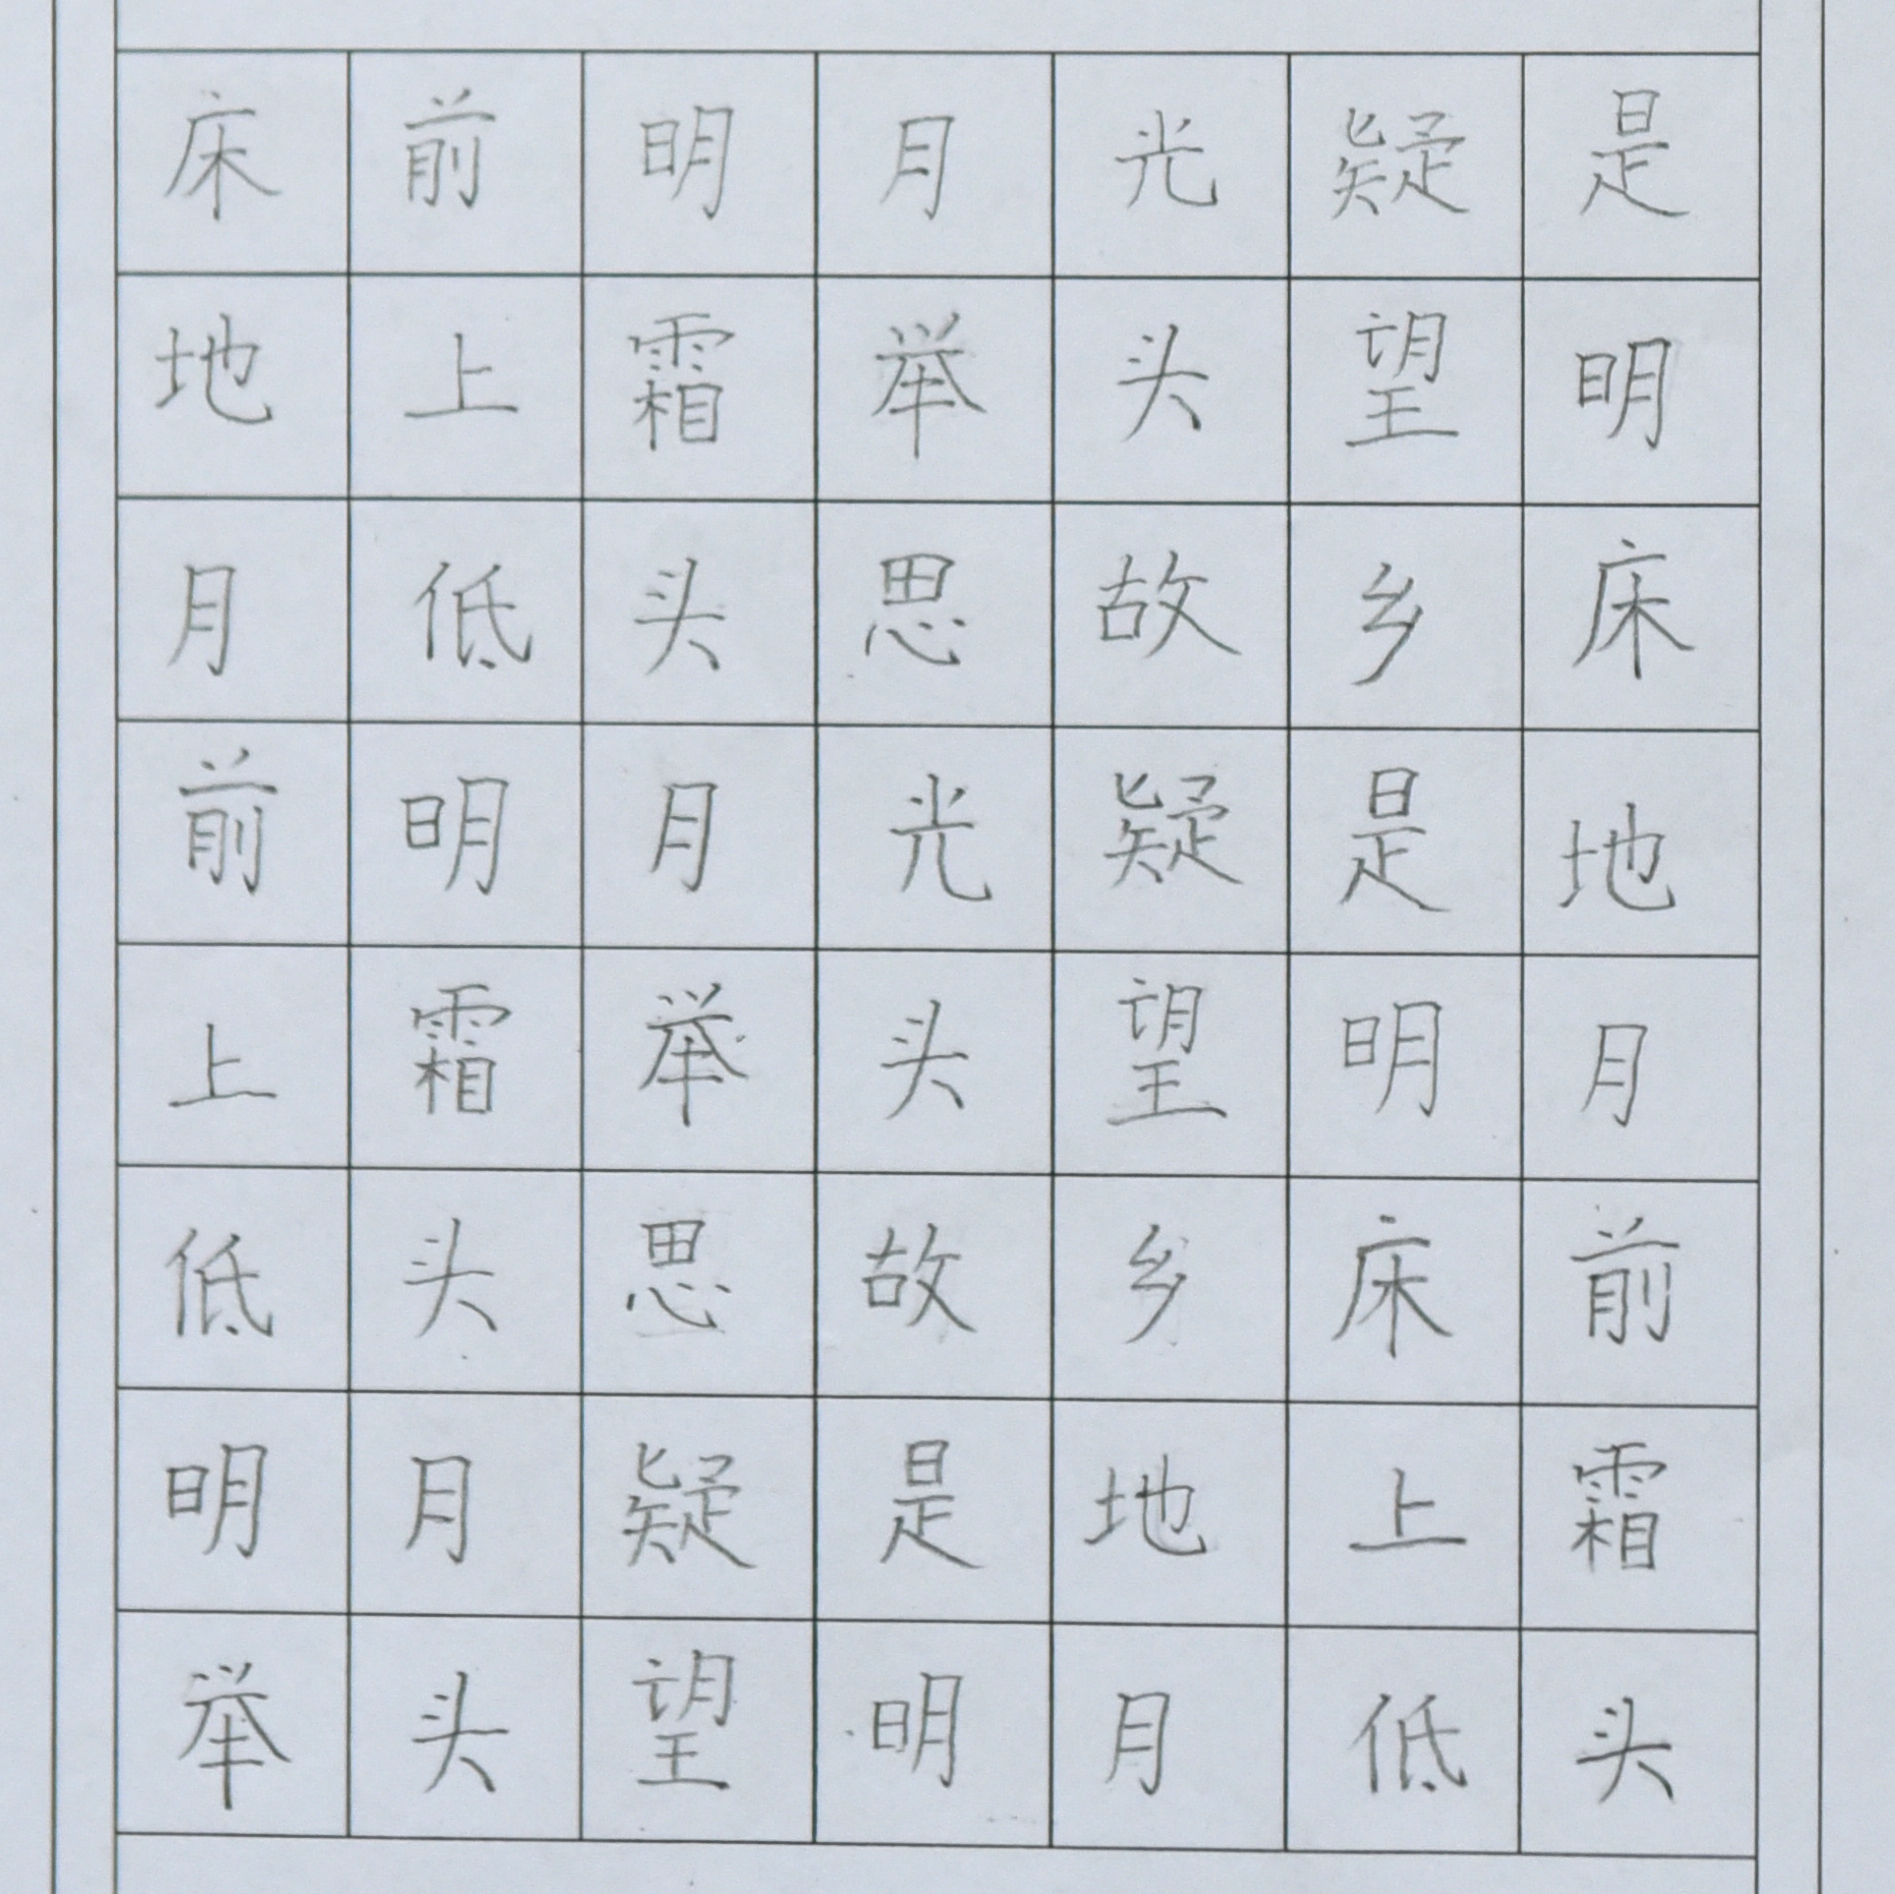 床前明月光疑是
地上霜举头望明
月低头思故乡床
前明月光疑是地
上霜举头望明月
低头思故乡床前
明月疑是地上霜
举头望明月低头